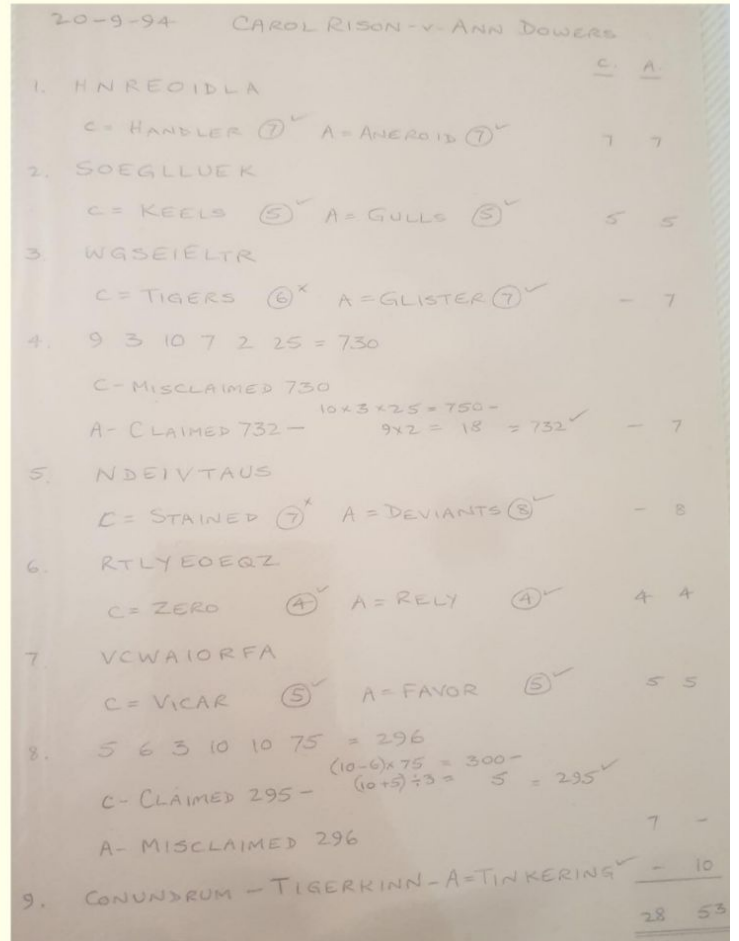 20-9-94 CAROL RISON-V-ANN DOWERS
C. A.
1. HNREOIDLA
C = HANDLER ⑦✓ A = ANEROID ⑦✓ 7 7
2. SOEGLLUEK
C = KEELS ⑤✓ A = GULLS ⑤✓ 5 5
3. WGSEIELTR
C = TIGERS ⑥× A = GLISTER ⑦✓ - 7
4. 9 3 10 7 2 25 = 730
C - MISCLAIMED 730
10 x 3 x 25 = 750 -
A - CLAIMED 732 - 9 x 2 = 18 = 732✓ - 7
5. NDEIVTAUS
C = STAINED ⑦× A = DEVIANTS ⑧✓ - 8
6. RTLYEOEQZ
C = ZERO ④✓ A = RELY ④✓ 4 4
7 VCWAIORFA
C = VICAR ⑤✓ A = FAVOR ⑤✓ 5 5
8. 5 6 3 10 10 75 = 296
(10-6)x75 = 300 -
C - CLAIMED 295 - (10+5)÷3 = 5 = 295✓
7 -
A - MISCLAIMED 296
9. CONUNDRUM - TIGERKINN - A = TINKERING✓ - 10
28 53